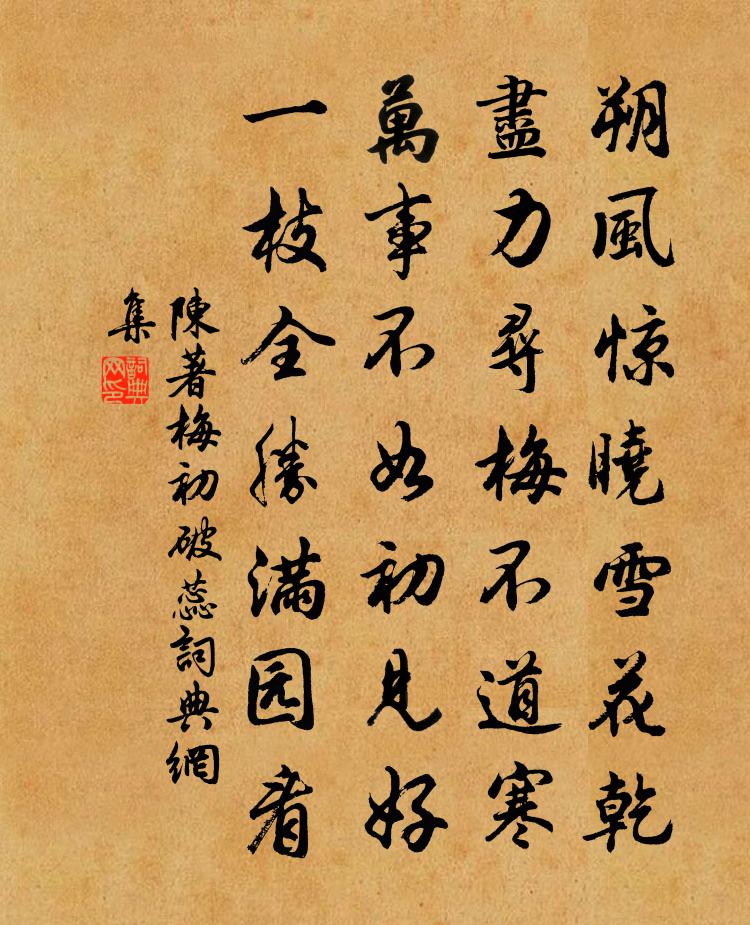 朔風惊曉雪花乾
盡力尋梅不道寒
萬事不如初見好
一枝全勝滿园看
陳著梅初破蕊詞典網
集
詞典
网印